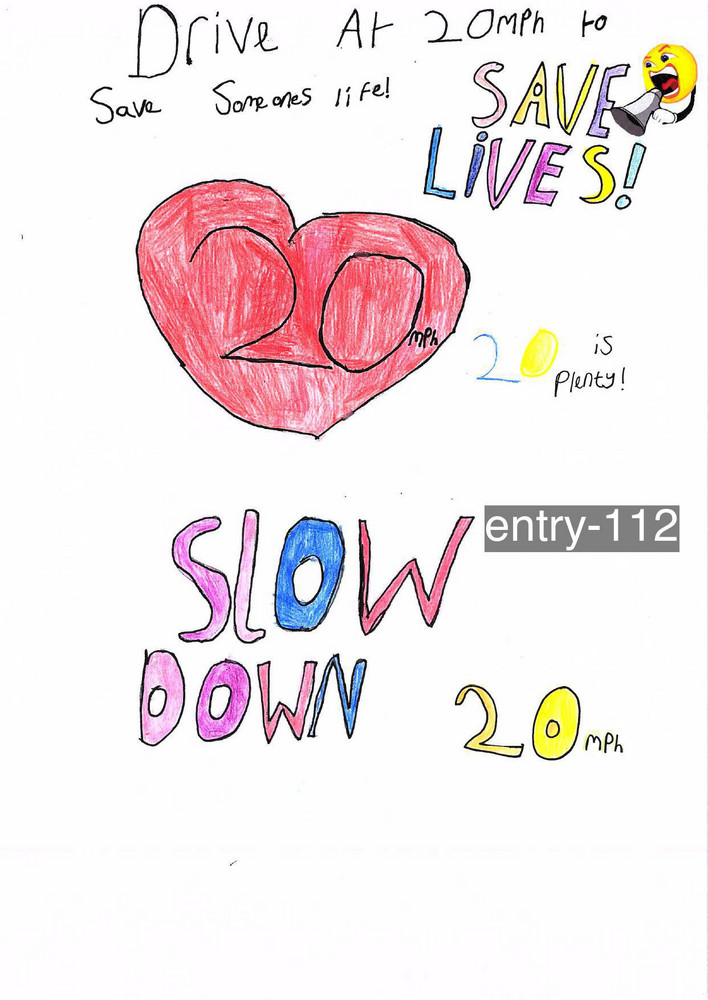 Drive At 20mph to
Save Someones life!
SAVE
LiVES!
20
mph
20 is
Plenty!
SLOW
entry-112
DOWN
20 mph